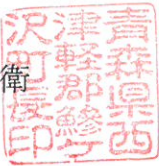 青森県西
津軽郡鰺ケ
沢町長印
衛